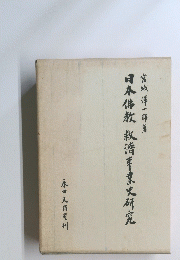 宮城洋一郎著
日本佛教救済事業史研究
永田文昌堂刊